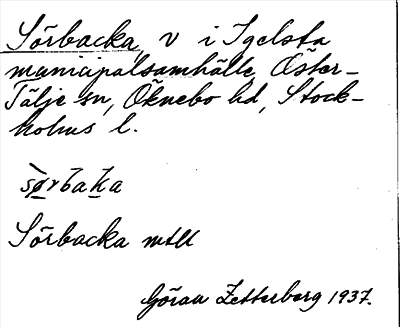 Sörbacka, v i Igelsta
municipalsamhälle, Öster-
Tälje sn, Öknebo hd, Stock-
holms l.
sørbaka
Sörbacka mtll
Göran Zetterberg 1937.